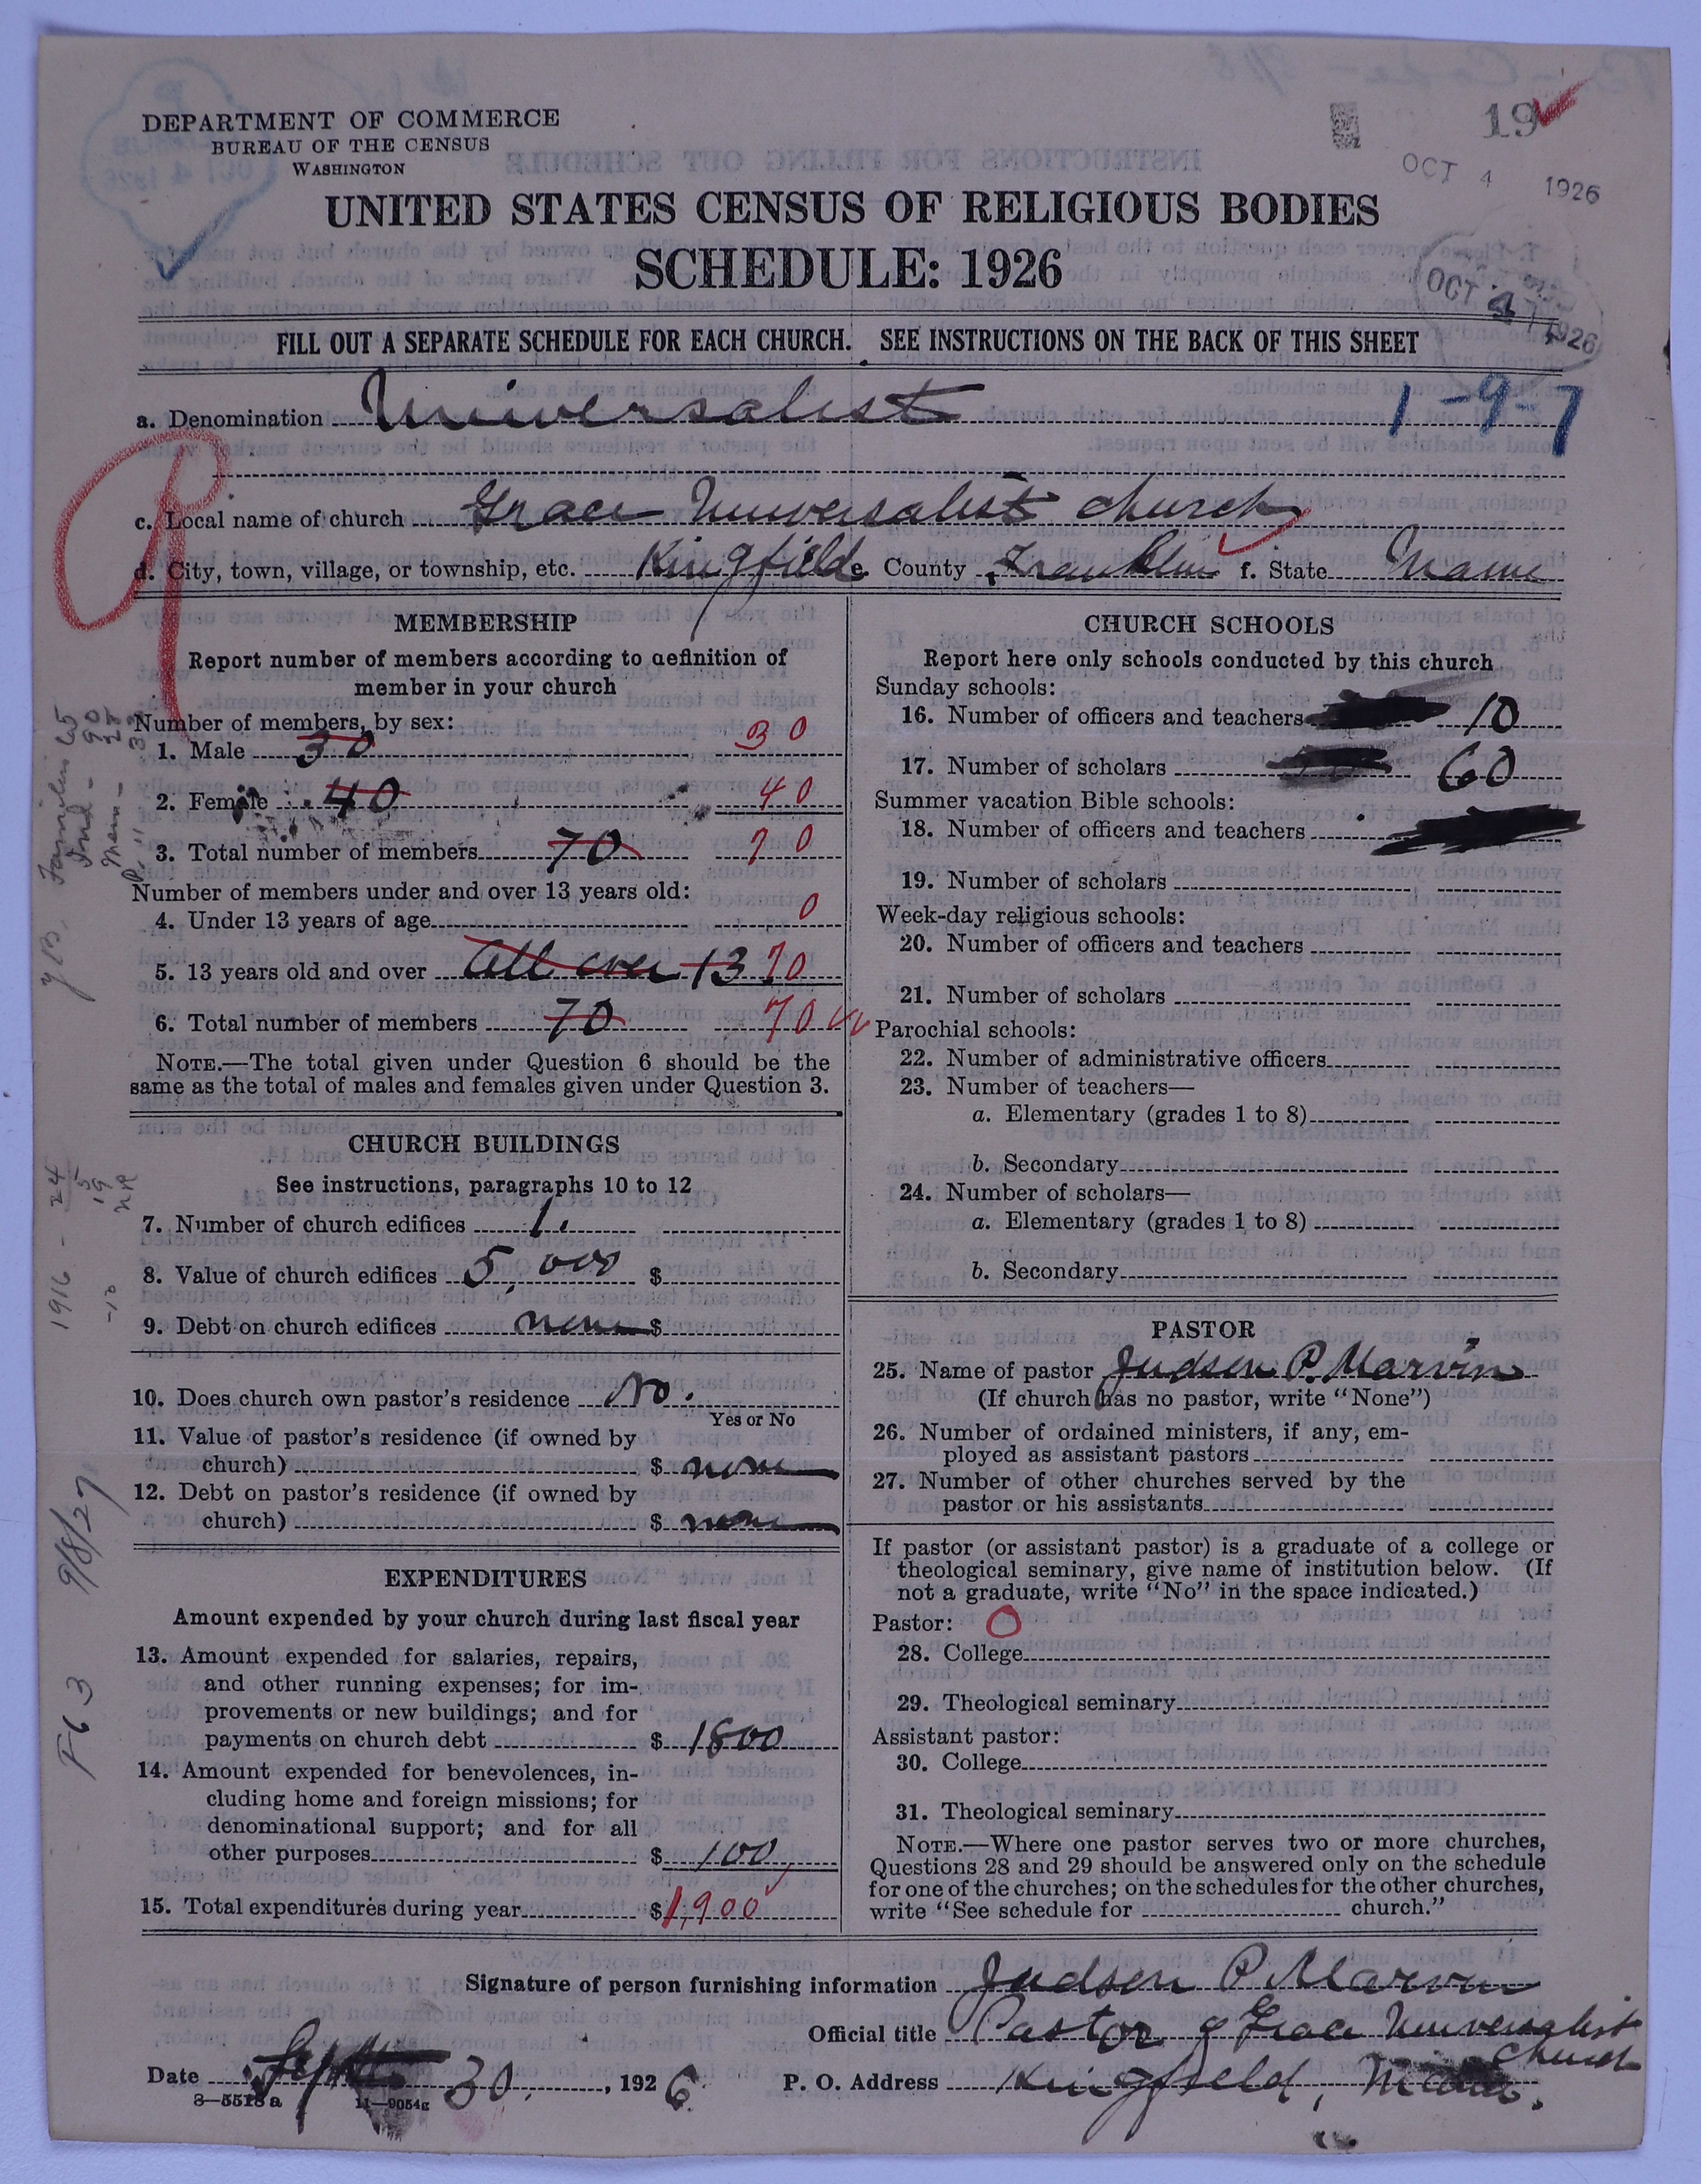 DEPARTMENT OF COMMERCE
BUREAU OF THE CENSUS
WASHINGTON
19
OCT 4 1926
UNITED STATES CENSUS OF RELIGIOUS BODIES
SCHEDULE: 1926
OCT 4 1926
FILL OUT A SEPARATE SCHEDULE FOR EACH CHURCH. SEE INSTRUCTIONS ON THE BACK OF THIS SHEET
a. Denomination Universalist
1-9-7
c. Local name of church Grace Universalist church
d. City, town, village, or township, etc. Kingfield e. County Franklin f. State Maine
MEMBERSHIP
Report number of members according to definition of
member in your church
Number of members, by sex:
1. Male 30 30
2. Female 40 40
3. Total number of members 70 70
Number of members under and over 13 years old:
4. Under 13 years of age 0
5. 13 years old and over All over 13 70
6. Total number of members 70 70
NOTE.—The total given under Question 6 should be the
same as the total of males and females given under Question 3.
CHURCH BUILDINGS
See instructions, paragraphs 10 to 12
7. Number of church edifices 1.
8. Value of church edifices 5,000 $
9. Debt on church edifices none $
10. Does church own pastor's residence No.
Yes or No
11. Value of pastor's residence (if owned by
church) $ none
12. Debt on pastor's residence (if owned by
church) $ none
EXPENDITURES
Amount expended by your church during last fiscal year
13. Amount expended for salaries, repairs,
and other running expenses; for im-
provements or new buildings; and for
payments on church debt $ 1800
14. Amount expended for benevolences, in-
cluding home and foreign missions; for
denominational support; and for all
other purposes $ 100
15. Total expenditures during year $ 1,900
CHURCH SCHOOLS
Report here only schools conducted by this church
Sunday schools:
16. Number of officers and teachers 10
17. Number of scholars 60
Summer vacation Bible schools:
18. Number of officers and teachers
19. Number of scholars
Week-day religious schools:
20. Number of officers and teachers
21. Number of scholars
Parochial schools:
22. Number of administrative officers
23. Number of teachers—
a. Elementary (grades 1 to 8)
b. Secondary
24. Number of scholars—
a. Elementary (grades 1 to 8)
b. Secondary
PASTOR
25. Name of pastor Judson P. Marvin
(If church has no pastor, write "None")
26. Number of ordained ministers, if any, em-
ployed as assistant pastors
27. Number of other churches served by the
pastor or his assistants
If pastor (or assistant pastor) is a graduate of a college or
theological seminary, give name of institution below. (If
not a graduate, write "No" in the space indicated.)
Pastor: O
28. College
29. Theological seminary
Assistant pastor:
30. College
31. Theological seminary
NOTE.—Where one pastor serves two or more churches,
Questions 28 and 29 should be answered only on the schedule
for one of the churches; on the schedules for the other churches,
write "See schedule for church."
Signature of person furnishing information Judson P. Marvin
Official title Pastor of Grace Universalist
church
Date Sept 30, 1926 P. O. Address Kingfield, Maine.
8—5518a 11—9054g
1916 - 24
5
19
NR
-10
9/8/27
F63